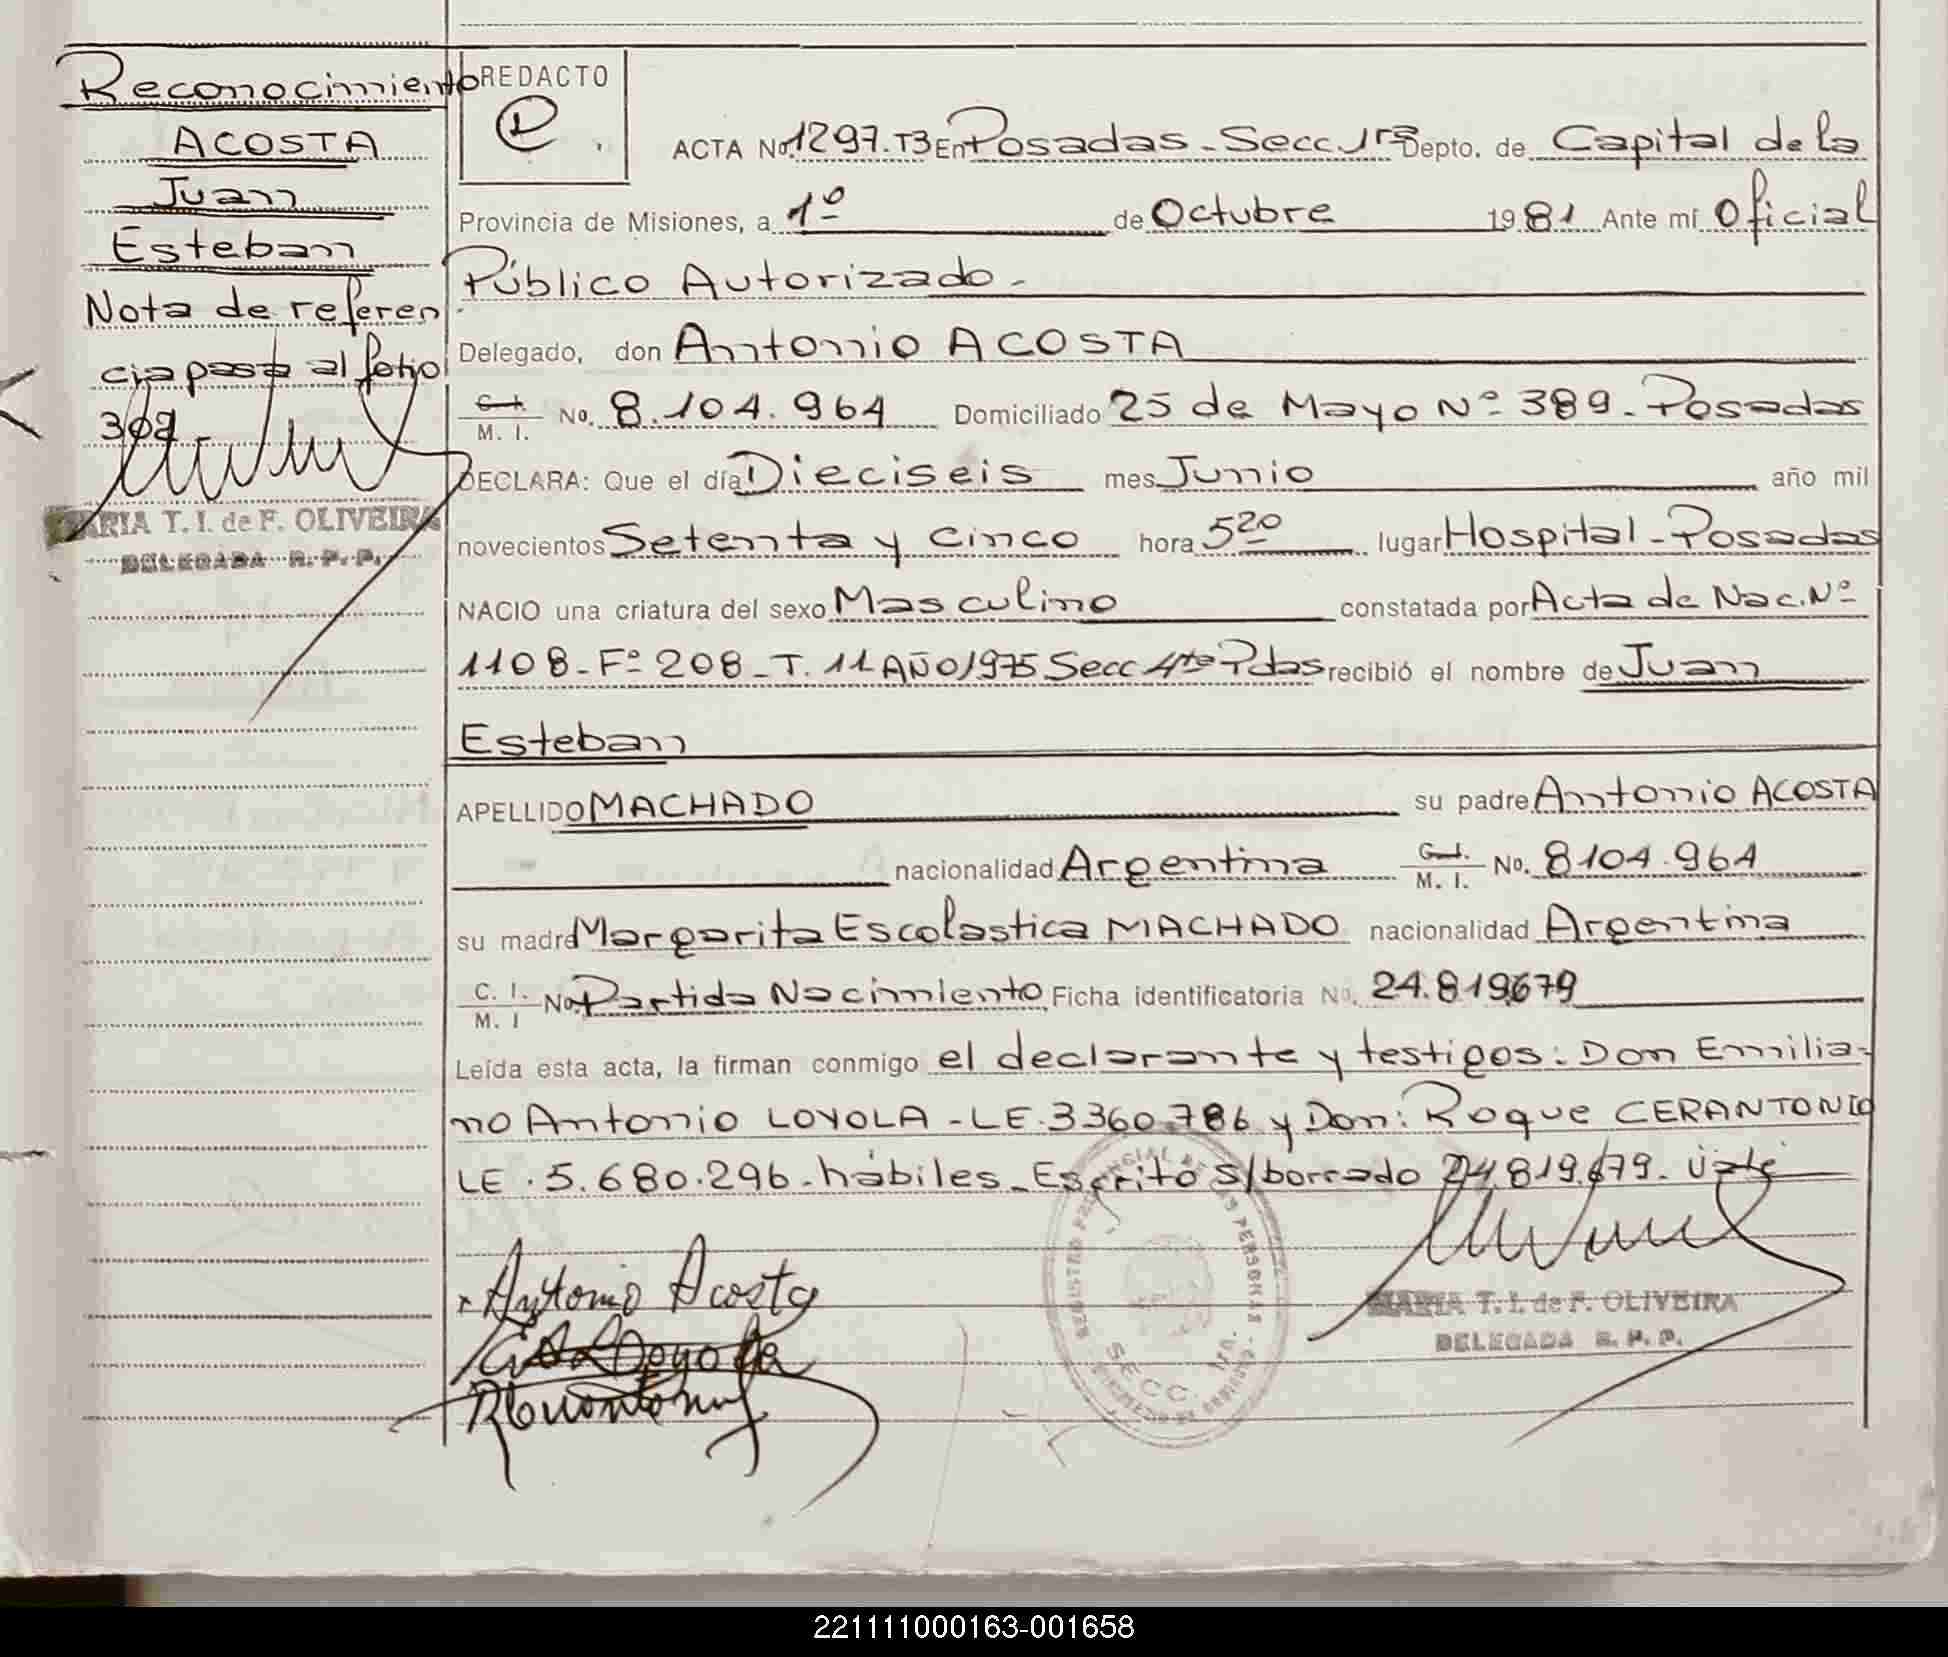 Reconocimiento
ACOSTA
Juan
Esteban
Nota de referen
cia pasa al folio
302.
MARIA T. I. de F. OLIVEIRA
DELEGADA R. P. P.
REDACTO
ACTA No. 1297. T3 En Posadas - Secc. 1ra Depto. de Capital de la
Provincia de Misiones, a 1º de Octubre 1981 Ante mí Oficial
Público Autorizado -
Delegado, don Antonio ACOSTA
C. I. M. I. No. 8.104.964 Domiciliado 25 de Mayo Nº 389 - Posadas
DECLARA: Que el día Dieciseis mes Junio año mil
novecientos Setenta y cinco hora 5 20 lugar Hospital - Posadas
NACIO una criatura del sexo Masculino constatada por Acta de Nac. Nº
1108 - Fº 208 - T. 11 AÑO 1975 Secc 4ta Pdas recibió el nombre de Juan
Esteban
APELLIDO MACHADO su padre Antonio ACOSTA
nacionalidad Argentina C. I. M. I. No. 8104.964
su madre Margarita Escolastica MACHADO nacionalidad Argentina
C. I. M. I No. Partida Nacimiento Ficha identificatoria No. 24.819679
Leída esta acta, la firman conmigo el declarante y testigos: Don Emilia-
no Antonio LOYOLA - LE. 3360.786 y Don: Roque CERANTONIO
LE. 5.680.296 - hábiles - Escrito s/borrado 24.819.679 - Vale
Antonio Acosta
MARIA T. I. de F. OLIVEIRA
DELEGADA R. P. P.
REGISTRO PROVINCIAL DE LAS PERSONAS
SECC. 1RA.
221111000163-001658